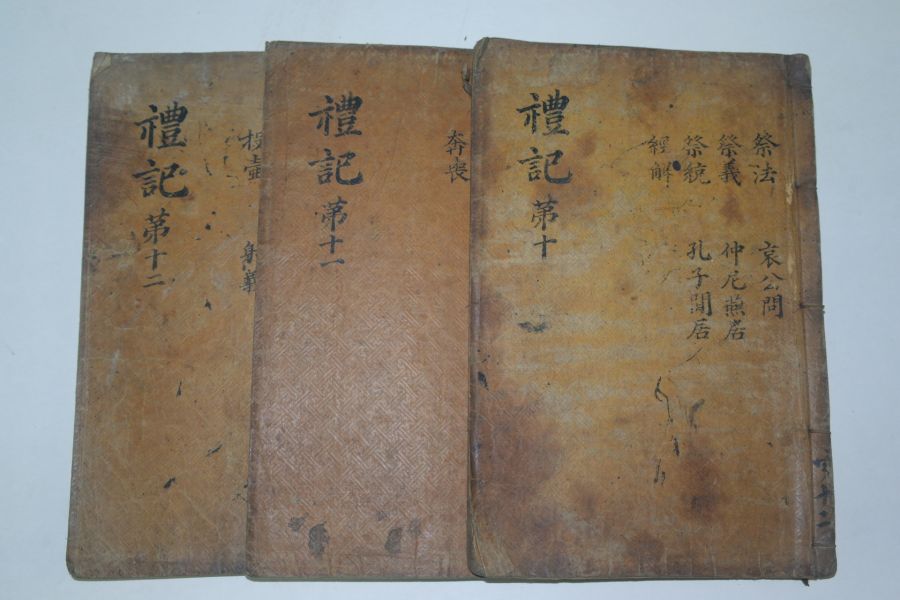 禮記 第十
祭法 哀公問
祭義 仲尼燕居
祭統 孔子閒居
經解
禮記 第十一
奔喪
禮記 第十二
投壺 射義